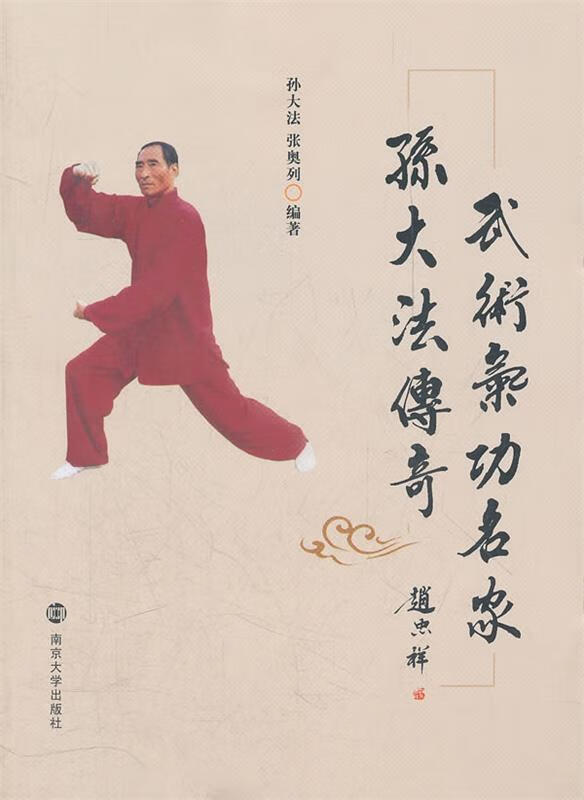 武術氣功名家
孫大法傳奇
趙忠祥
孙大法 张奥列 编著
南京大学出版社